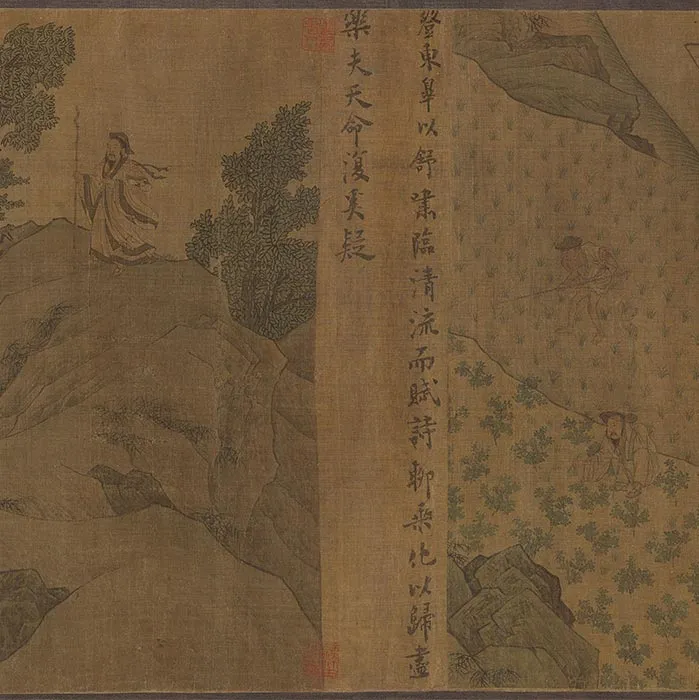 登東皐以舒嘯臨清流而賦詩聊乗化以歸盡
樂夫天命復奚疑